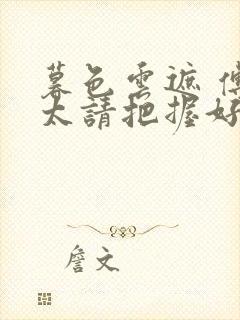 暮色雲遮 傅
太請把握好
詹文